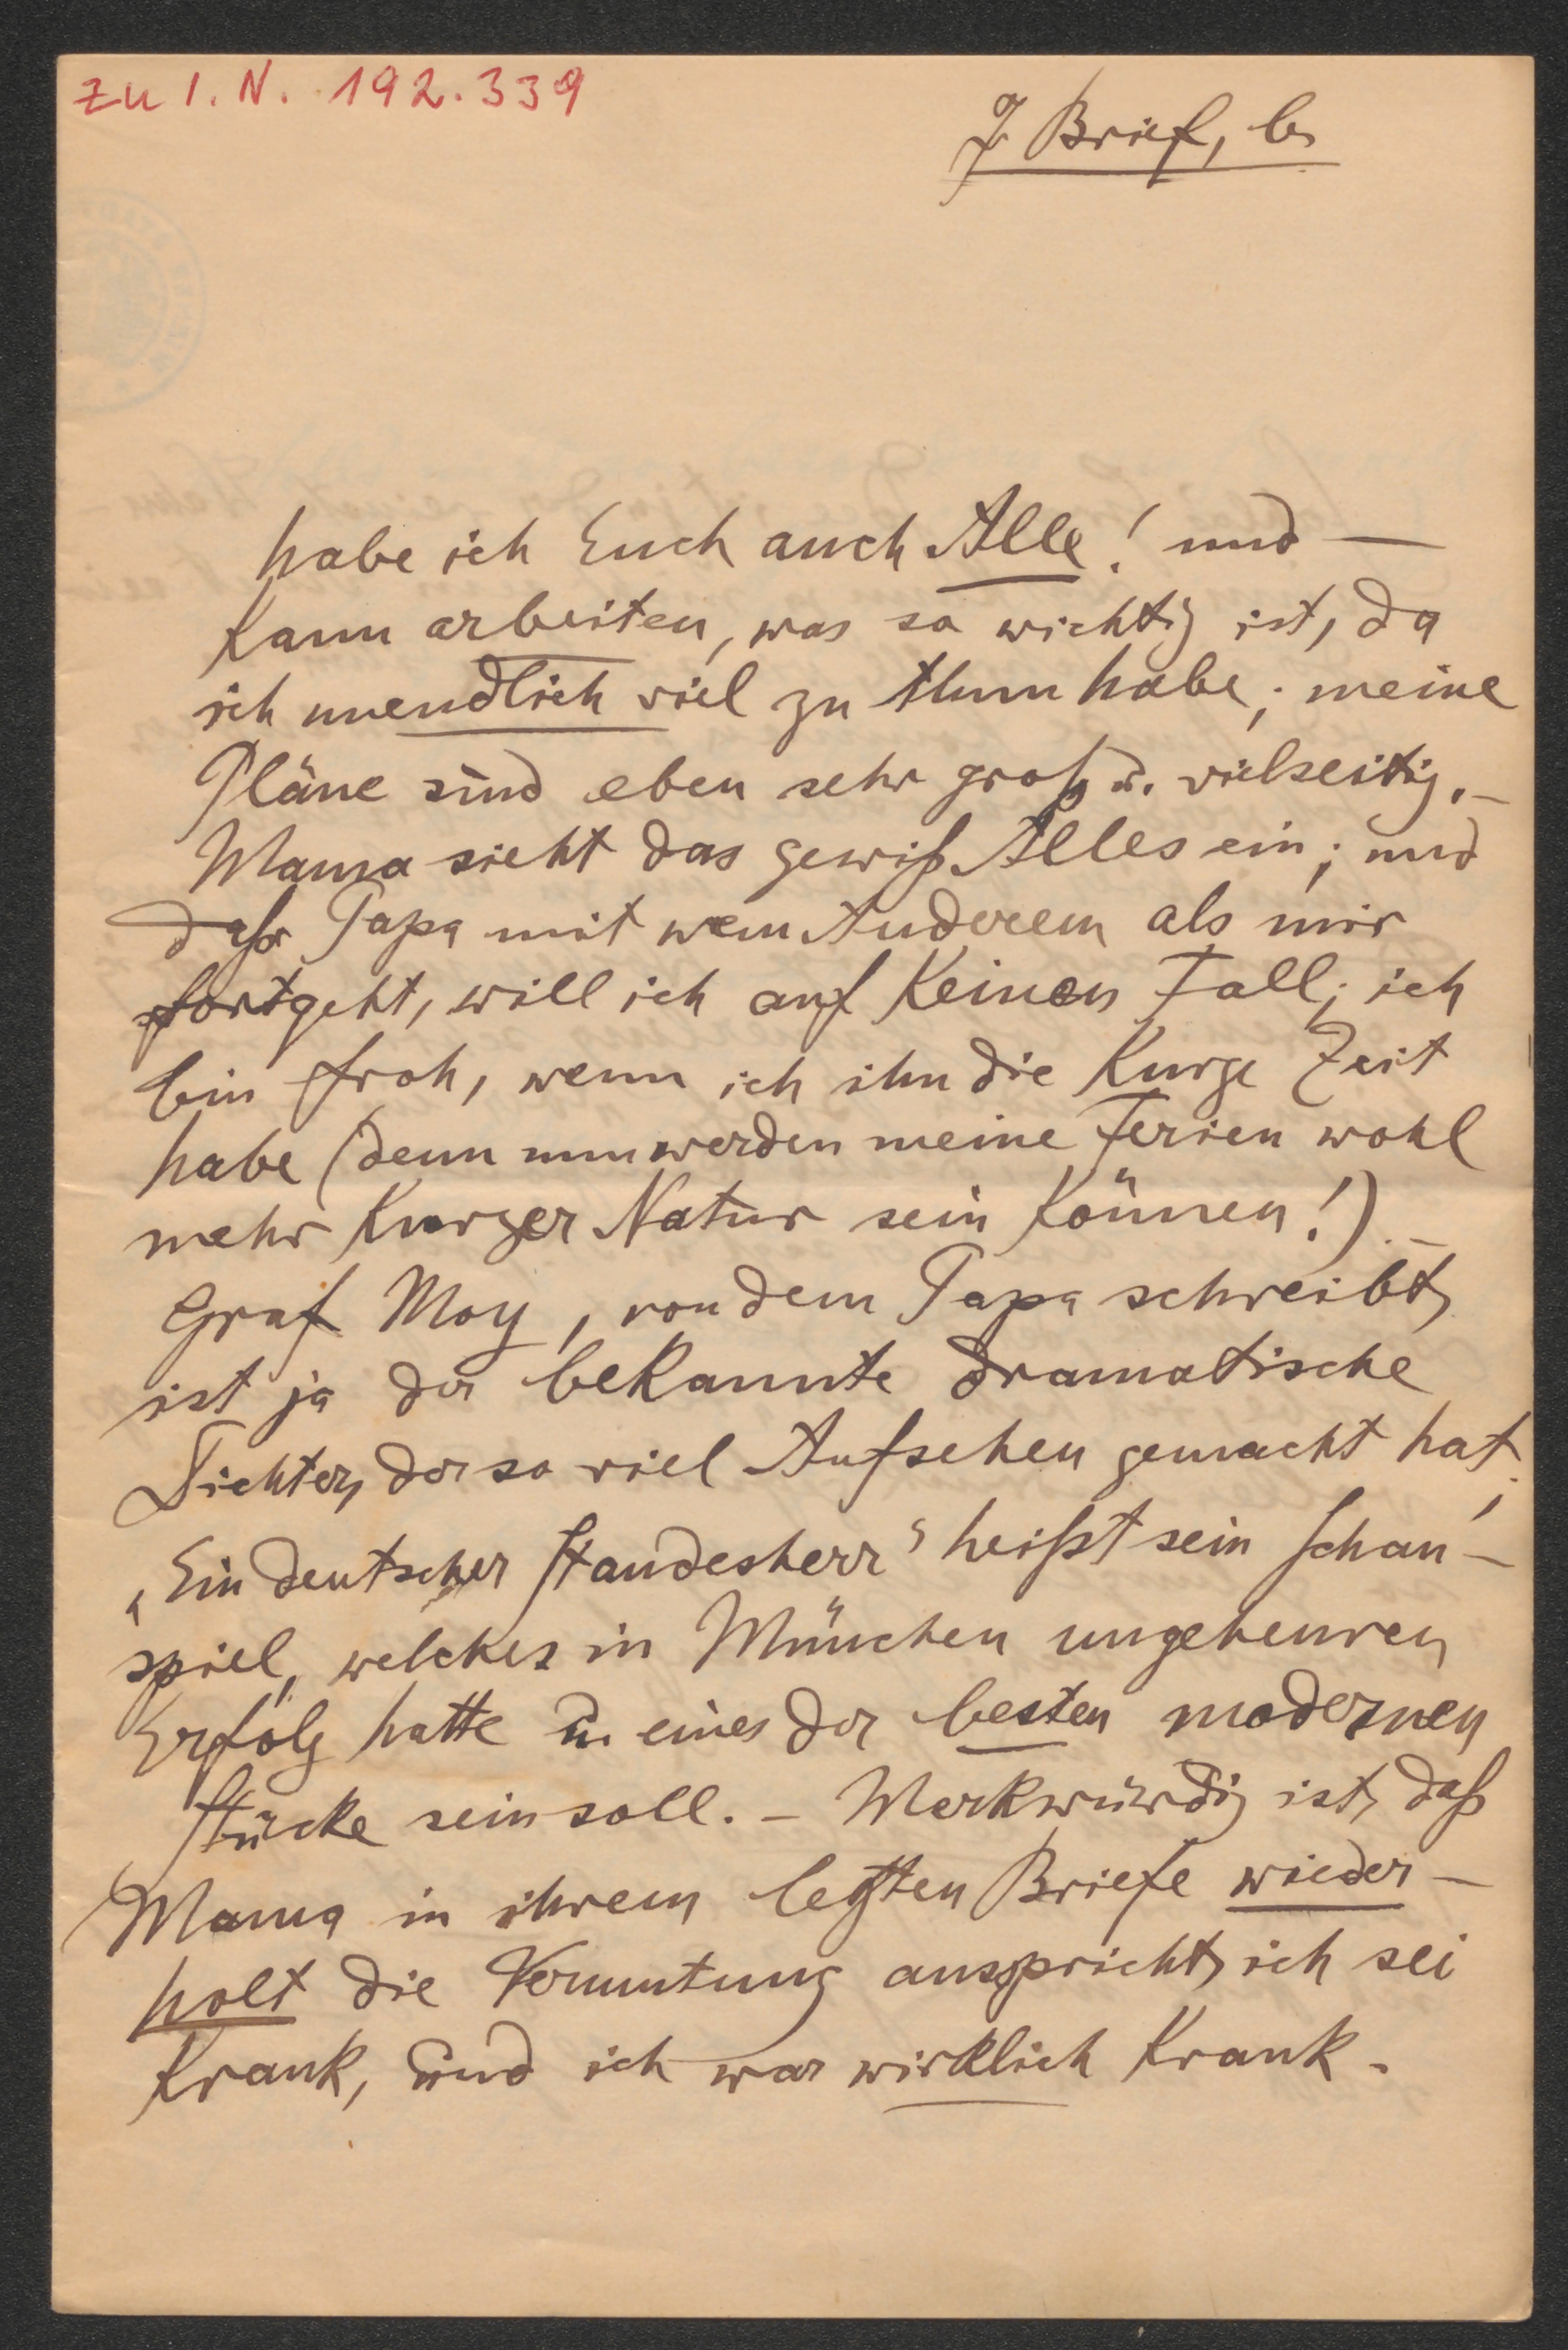 zu I. N. 192.339
7. Brief, b
habe ich Euch auch Alle! und —
kann arbeiten, was so wichtig ist, da
ich unendlich viel zu thun habe; meine
Pläne sind eben sehr groß u. vielseitig. –
Mama sieht das gewiß Alles ein; und
daß Papa mit wem Anderem als mir
fortgeht, will ich auf keinen Fall; ich
bin froh, wenn ich ihn die kurze Zeit
habe (denn nun werden meine Ferien wohl
mehr kurzer Natur sein können!). –
Graf Moy, von dem Papa schreibt,
ist ja der bekannte dramatische
Dichter, der so viel Aufsehen gemacht hat;
„Ein deutscher Standesherr" heißt sein Schau-
spiel, welches in München ungeheuren
Erfolg hatte u. eines der besten modernen
Stücke sein soll. – Merkwürdig ist, daß
Mama in ihrem letzten Briefe wieder-
holt die Vermutung ausspricht, ich sei
krank, und ich war wirklich krank.